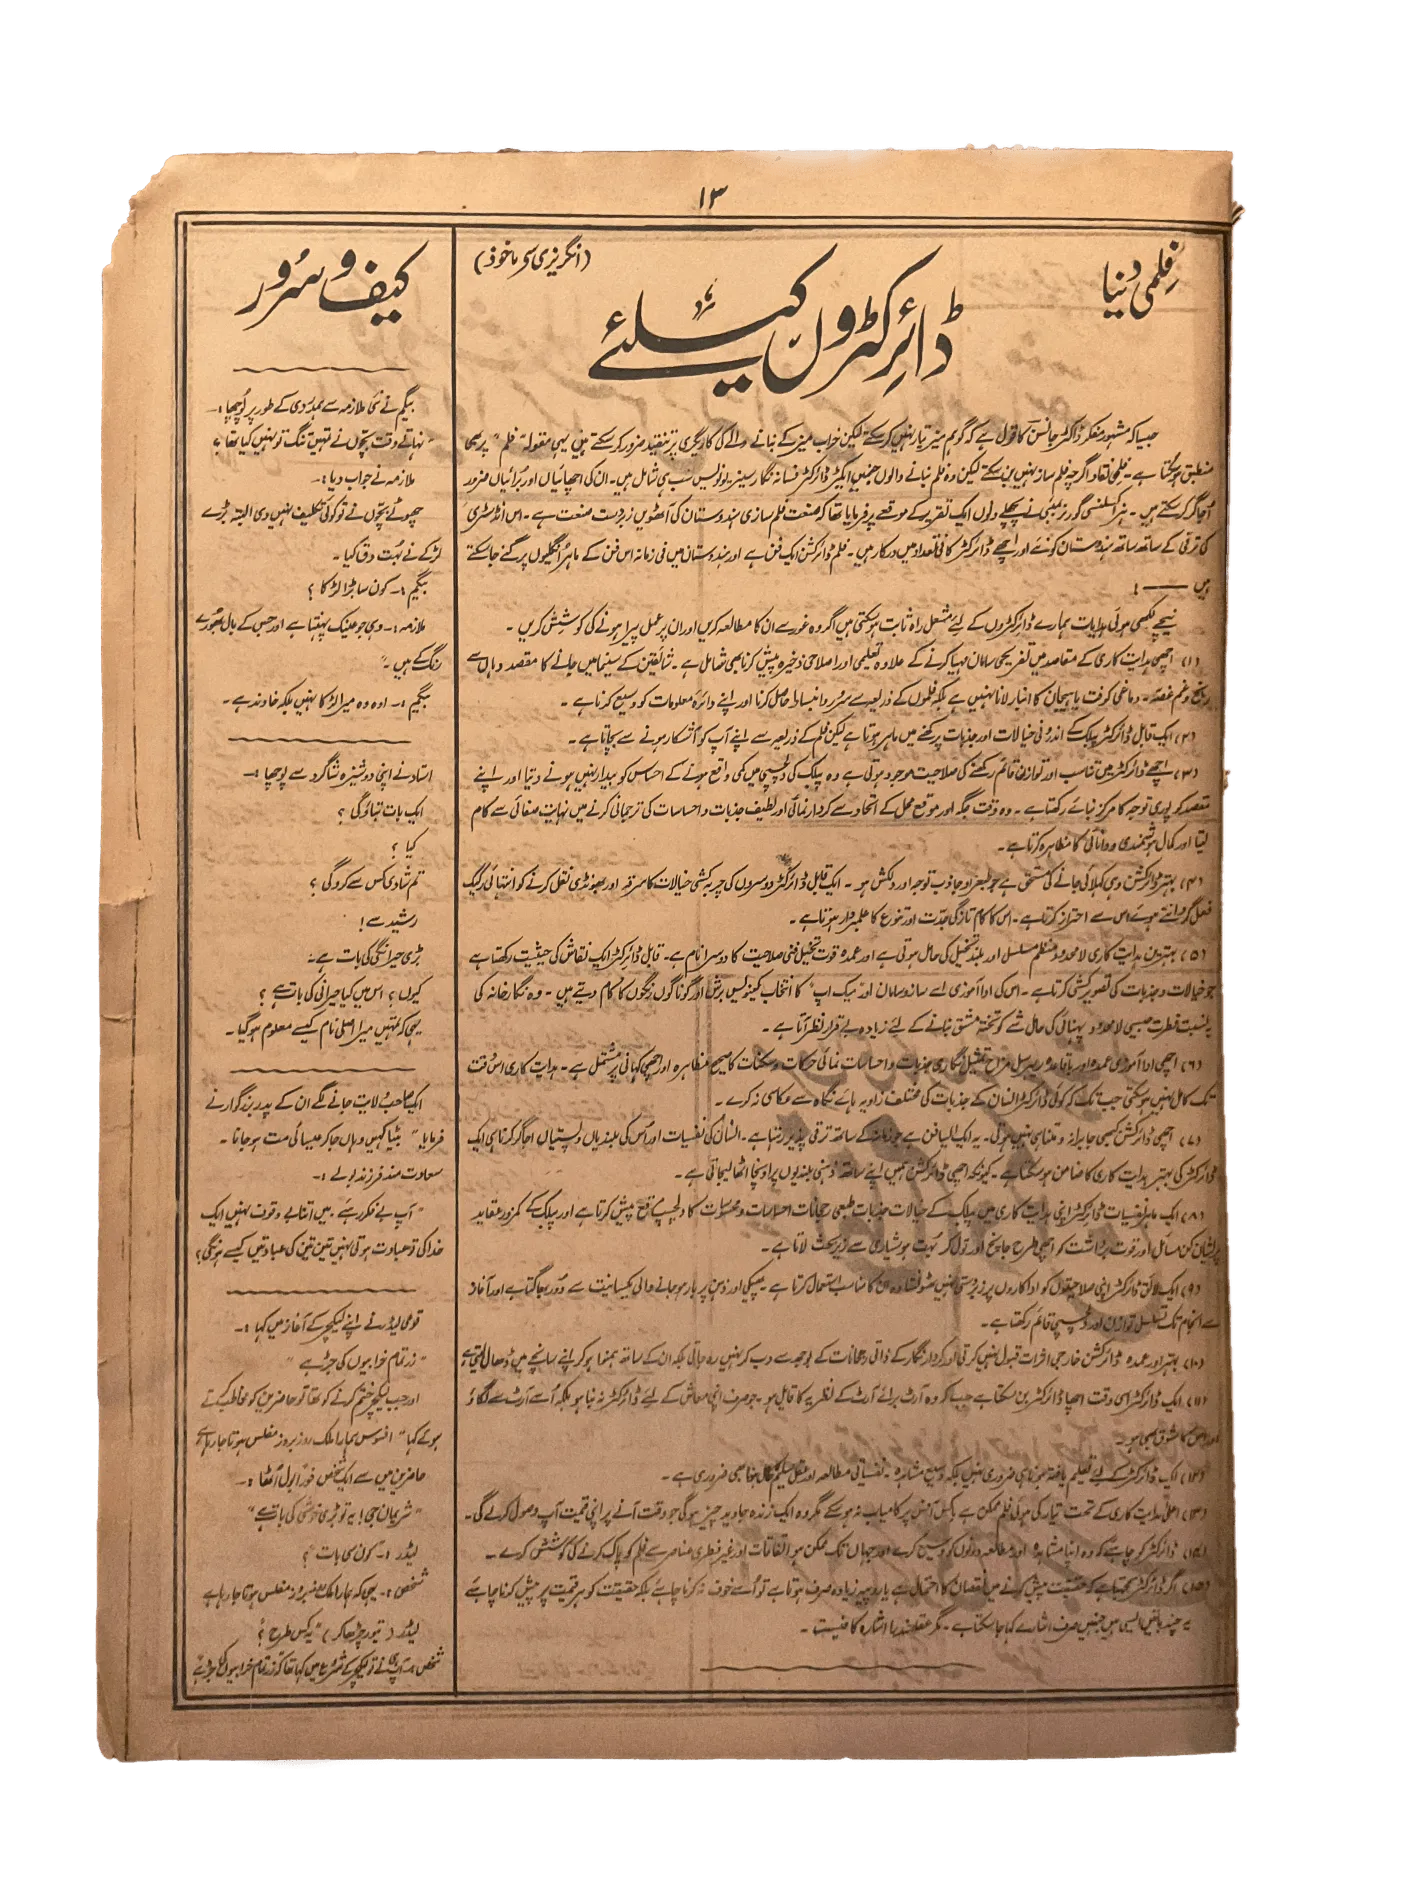 ۱۳
فلمی دنیا
(انگریزی سے ماخوذ)
ڈائرکٹروں کیلئے
جیسا کہ مشہور مفکر ڈاکٹر جانسن کا قول ہے کہ گو ہم میز تیار نہیں کر سکتے لیکن خراب میز کے بنانے والے کی کاریگری پر تنقید ضرور کر سکتے ہیں یہی مقولہ "فلم" پر بھی
منطبق ہو سکتا ہے۔ فلمی نقاد اگرچہ فلم ساز نہیں بن سکتے لیکن وہ فلم بنانے والوں جنمیں ایکٹر ڈائرکٹر فسانہ نگار سینریو نویس سب ہی شامل ہیں۔ ان کی اچھائیاں اور برائیاں ضرور
اُجاگر کر سکتے ہیں۔ ہز اکسلنسی گورنر بمبئی نے پچھلے دنوں ایک تقریر کے موقعے پر فرمایا تھا کہ صنعت فلم سازی ہندوستان کی آٹھویں زبردست صنعت ہے۔ اس انڈسٹری
کی ترقی کے ساتھ ساتھ ہندوستان کو نئے اور اچھے ڈائرکٹر کافی تعداد میں درکار ہیں۔ فلم ڈائرکشن ایک فن ہے اور ہندوستان میں فی زمانہ اس فن کے ماہر انگلیوں پر گنے جا سکتے
ہیں ——!
نیچے لکھی ہوئی ہدایات ہمارے ڈائرکٹروں کے لئے مشعل راہ ثابت ہو سکتی ہیں اگر وہ غور سے ان کا مطالعہ کریں اور ان پر عمل پیرا ہونے کی کوشش کریں۔
(۱) اچھی ہدایت کاری کے مقاصد میں تفریحی سامان مہیا کرنے کے علاوہ تعلیمی اور اصلاحی ذخیرہ پیش کرنا بھی شامل ہے۔ شائقین کے سینما میں جانے کا مقصد وہاں سے
رنج و غم غصہ۔ دماغی کوفت یا ہیجان کا انبار لانا نہیں ہے بلکہ فلموں کے ذریعہ سے سرور و انبساط حاصل کرنا اور اپنے دائرہ معلومات کو وسیع کرنا ہے۔
(۲) ایک قابل ڈائرکٹر پبلک کے اندرونی خیالات اور جذبات پرکھنے میں ماہر ہوتا ہے لیکن فلم کے ذریعہ سے اپنے آپ کو آشکار ہونے سے بچاتا ہے۔
(۳) اچھے ڈائرکٹر میں تناسب اور توازن قائم رکھنے کی صلاحیت موجود ہوتی ہے وہ پبلک کی دلچسپی میں کمی واقع ہونے کے احساس کو بیدار نہیں ہونے دیتا اور اپنے
مقصد کو پوری توجہ کا مرکز بنائے رکھتا ہے۔ وہ وقت جگہ اور موقع محل کے اتحاد سے کردار نمائی اور لطیف جذبات و احساسات کی ترجمانی کرنے میں نہایت صفائی سے کام
لیتا اور کمال ہوشمندی و دانائی کا مظاہرہ کرتا ہے۔
(۴) بہتر ڈائرکشن وہی کہلائی جانے کی مستحق ہے جو طبعزاد جاذب توجہ اور دلکش ہو۔ ایک قابل ڈائرکٹر دوسروں کی چربہ کشی خیالات کا سرقہ اور بھونڈی نقل کرنے کو انتہائی رکیک
فعل گردانتے ہوئے اس سے احتراز کرتا ہے۔ اس کا کام تازگی جدت اور تنوع کا علمبردار ہوتا ہے۔
(۵) بہترین ہدایت کاری لامحدود منظم مسلسل اور بلند تخیل کی حامل ہوتی ہے اور عمدہ قوت تخیل فنی صلاحیت کا دوسرا نام ہے۔ قابل ڈائرکٹر ایک نقاش کی حیثیت رکھتا ہے
جو خیالات و جذبات کی تصویر کشی کرتا ہے۔ اس کی ادا آموزی اسے ساز و سامان اور "میک اپ" کا انتخاب کینویس برش اور گوناگوں رنگوں کا کام دیتے ہیں۔ وہ نگار خانہ کی
بہ نسبت فطرت جیسی لامحدود پہنائی کی حامل شے کو تختہ مشق بنانے کے لئے زیادہ بے قرار نظر آتا ہے۔
(۶) اچھی ادا آموزی عمدہ اور باقاعدہ ریہرسل مزاح تمثیل نگاری جذبات و احساسات نمائی حرکات و سکنات کا صحیح مظاہرہ اور اچھی کہانی پر مشتمل ہے۔ ہدایت کاری اس وقت
تک کامل نہیں ہو سکتی جب تک کہ کوئی ڈائرکٹر انسان کے جذبات کی مختلف زاویہ ہائے نگاہ سے عکاسی نہ کرے۔
(۷) اچھی ڈائرکشن کبھی جابرانہ و متناہی نہیں ہوتی۔ یہ ایک ایسا فن ہے جو زمانہ کے ساتھ ترقی پذیر رہتا ہے۔ انسان کی نفسیات اور اُس کی بلندیاں و پستیاں اجاگر کرنا ہی ایک
ڈائرکٹر کی بہتر ہدایت کاری کا ضامن ہو سکتا ہے۔ کیونکہ اچھی ڈائرکشن ہمیں اپنے ساتھ ذہنی بلندیوں پر اونچا اٹھا لیجاتی ہے۔
(۸) ایک ماہر نفسیات ڈائرکٹر اپنی ہدایت کاری میں پبلک کے خیالات جذبات طبعی رجحانات احساسات و محسوسات کا دلچسپ مرقع پیش کرتا ہے اور پبلک کے کمزور عقاید
پریشان کن مسائل اور قوت برداشت کو اچھی طرح جانچ اور تول کر بہت ہوشیاری سے زیر بحث لاتا ہے۔
(۹) ایک لائق ڈائرکٹر اپنی صلاحیتوں کو اداکاروں پر زبردستی نہیں ٹھونستا وہ ان کا مناسب استعمال کرتا ہے۔ پھیکی اور ذہن پر بار ہو جانے والی یکسانیت سے دور بھاگتا ہے اور آغاز
سے انجام تک تسلسل توازن اور دلچسپی قائم رکھتا ہے۔
(۱۰) بہتر اور عمدہ ڈائرکشن خارجی اثرات قبول نہیں کرتی اور کردار نگار کے ذاتی رجحانات کے بوجھ سے دب کر نہیں رہ جاتی بلکہ ان کے ساتھ ہمنوا ہو کر اپنے سانچے میں ڈھال لیتی ہے
(۱۱) ایک ڈائرکٹر اسی وقت اچھا ڈائرکٹر بن سکتا ہے جب کہ وہ آرٹ برائے آرٹ کے نظریہ کا قایل ہو۔ جو صرف اپنی معاش کے لئے ڈائرکٹر نہ بنا ہو بلکہ اُسے آرٹ سے لگاؤ
اور اس کا شوق بھی ہو۔
(۱۲) ایک ڈائرکٹر کے لئے تعلیم یافتہ ہونا ہی ضروری نہیں بلکہ وسیع مشاہدہ۔ نفسیاتی مطالعہ اور عقل سلیم کا مالک ہونا بھی ضروری ہے۔
(۱۳) اعلیٰ ہدایت کاری کے تحت تیار کی ہوئی فلم ممکن ہے بکس آفس پر کامیاب نہ ہو سکے مگر وہ ایک زندہ جاوید چیز ہو گی جو وقت آنے پر اپنی قیمت آپ وصول کر لے گی۔
(۱۴) ڈائرکٹر کو چاہئے کہ وہ اپنا مشاہدہ اور مطالعہ دونوں کو وسیع کرے اور جہاں تک ممکن ہو اتفاقات اور غیر فطری عناصر سے فلم کو پاک کرنے کی کوشش کرے۔
(۱۵) اگر ڈائرکٹر سمجھتا ہے کہ حقیقت پیش کرنے میں نقصان کا احتمال ہے یا روپیہ زیادہ صرف ہوتا ہے تو اُسے خوف نہ کرنا چاہئے بلکہ حقیقت کو ہر قیمت پر پیش کرنا چاہئے
یہ چند باتیں ایسی ہیں جنہیں صرف اشارے کہا جا سکتا ہے۔ مگر عقلمند را اشارہ کافیست۔
کیف و سرور
بیگم نے نئی ملازمہ سے ہمدردی کے طور پر پوچھا:۔
"نہاتے وقت بچوں نے تمہیں تنگ تو نہیں کیا تھا؟
ملازمہ نے جواب دیا:۔
چھوٹے بچوں نے تو کوئی تکلیف نہیں دی البتہ بڑے
لڑکے نے بہت دق کیا۔
بیگم:۔ کون سا بڑا لڑکا؟
ملازمہ:۔ وہی جو عینک پہنتا ہے اور جس کے بال بھورے
رنگ کے ہیں۔"
بیگم:۔ اوہ وہ میرا لڑکا نہیں بلکہ خاوند ہے۔
استاد نے اپنی دوشیزہ شاگرد سے پوچھا:۔
ایک بات بتاؤ گی؟
کیا؟
تم شادی کس سے کرو گی؟
رشید سے!
بڑی حیرانگی کی بات ہے۔
کیوں؟ اس میں کیا حیرانی کی بات ہے؟
یہی کہ تمہیں میرا اصلی نام کیسے معلوم ہو گیا۔
ایک صاحب ولایت جانے لگے ان کے پدر بزرگوار نے
فرمایا۔ "بیٹا کہیں وہاں جا کر عیسائی مت ہو جانا۔
سعادت مند فرزند بولے:۔
"آپ بے فکر رہئے۔ میں اتنا بے وقوف نہیں ایک
خدا کی تو عبادت ہوتی نہیں تین تین کی عبادتیں کیسے ہونگی؟
قومی لیڈر نے اپنے لیکچر کے آغاز میں کہا:۔
"زر تمام خرابیوں کی جڑ ہے"
اور جب لیکچر ختم کرنے کو تھا تو حاضرین کو مخاطب کرتے
ہوئے کہا "افسوس ہمارا ملک روز بروز مفلس ہوتا جا رہا ہے
حاضرین میں سے ایک شخص فوراً بول اُٹھا:۔
"شریمان جی! یہ تو بڑی خوشی کی بات ہے"
لیڈر:۔ کون سی بات؟
شخص:۔ یہی کہ ہمارا ملک روز بروز مفلس ہوتا جا رہا ہے
لیڈر (تیور چڑھا کر) "یہ کس طرح؟
شخص:۔ آپ ہی نے تو لیکچر کے شروع میں کہا تھا کہ زر تمام خرابیوں کی جڑ ہے